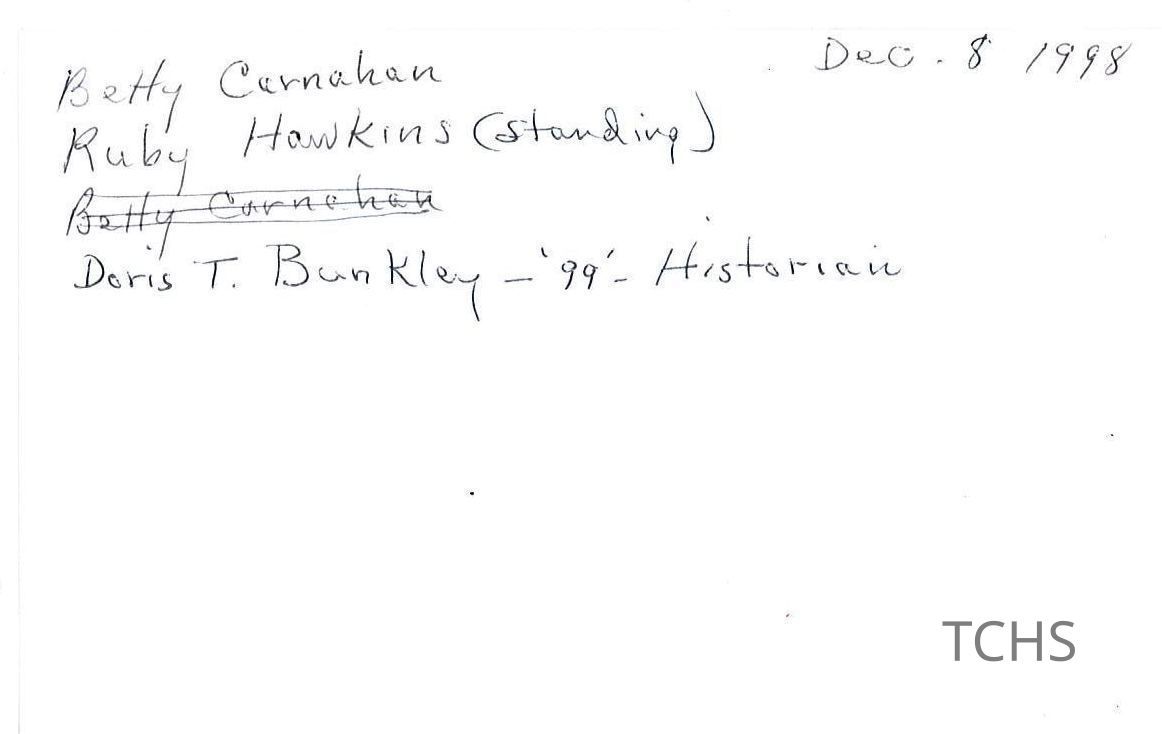 Betty Carnahan Dec. 8 1998
Ruby Hawkins (standing)
Betty Carnahan
Doris T. Bunkley - '99'- Historian
TCHS